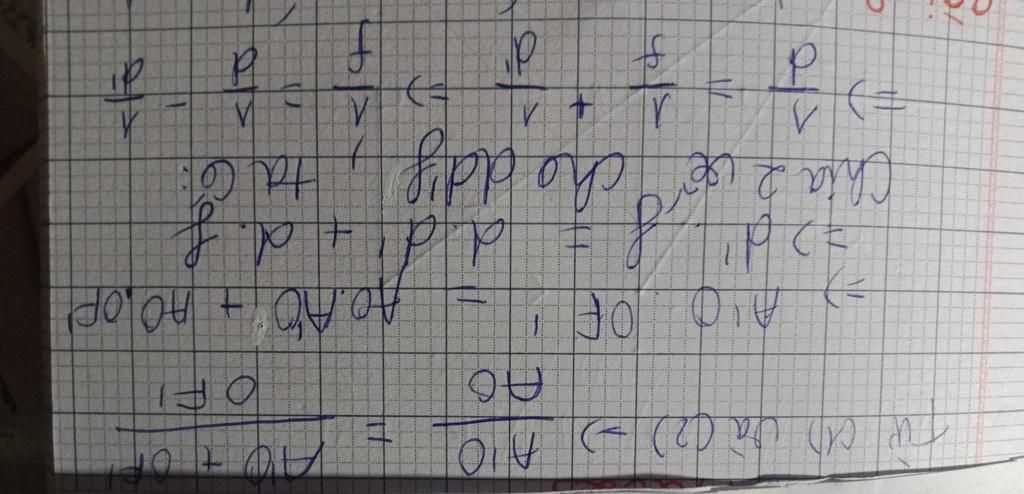 Từ (1) và (2) => A'O / AO = A'O + OF' / OF'
=> A'O . OF' = AO.A'O + AO.OF'
=> d'. f = d.d' + d.f
Chia 2 vế cho dd'f, ta có:
=> 1/d = 1/f + 1/d' => 1/f = 1/d - 1/d'